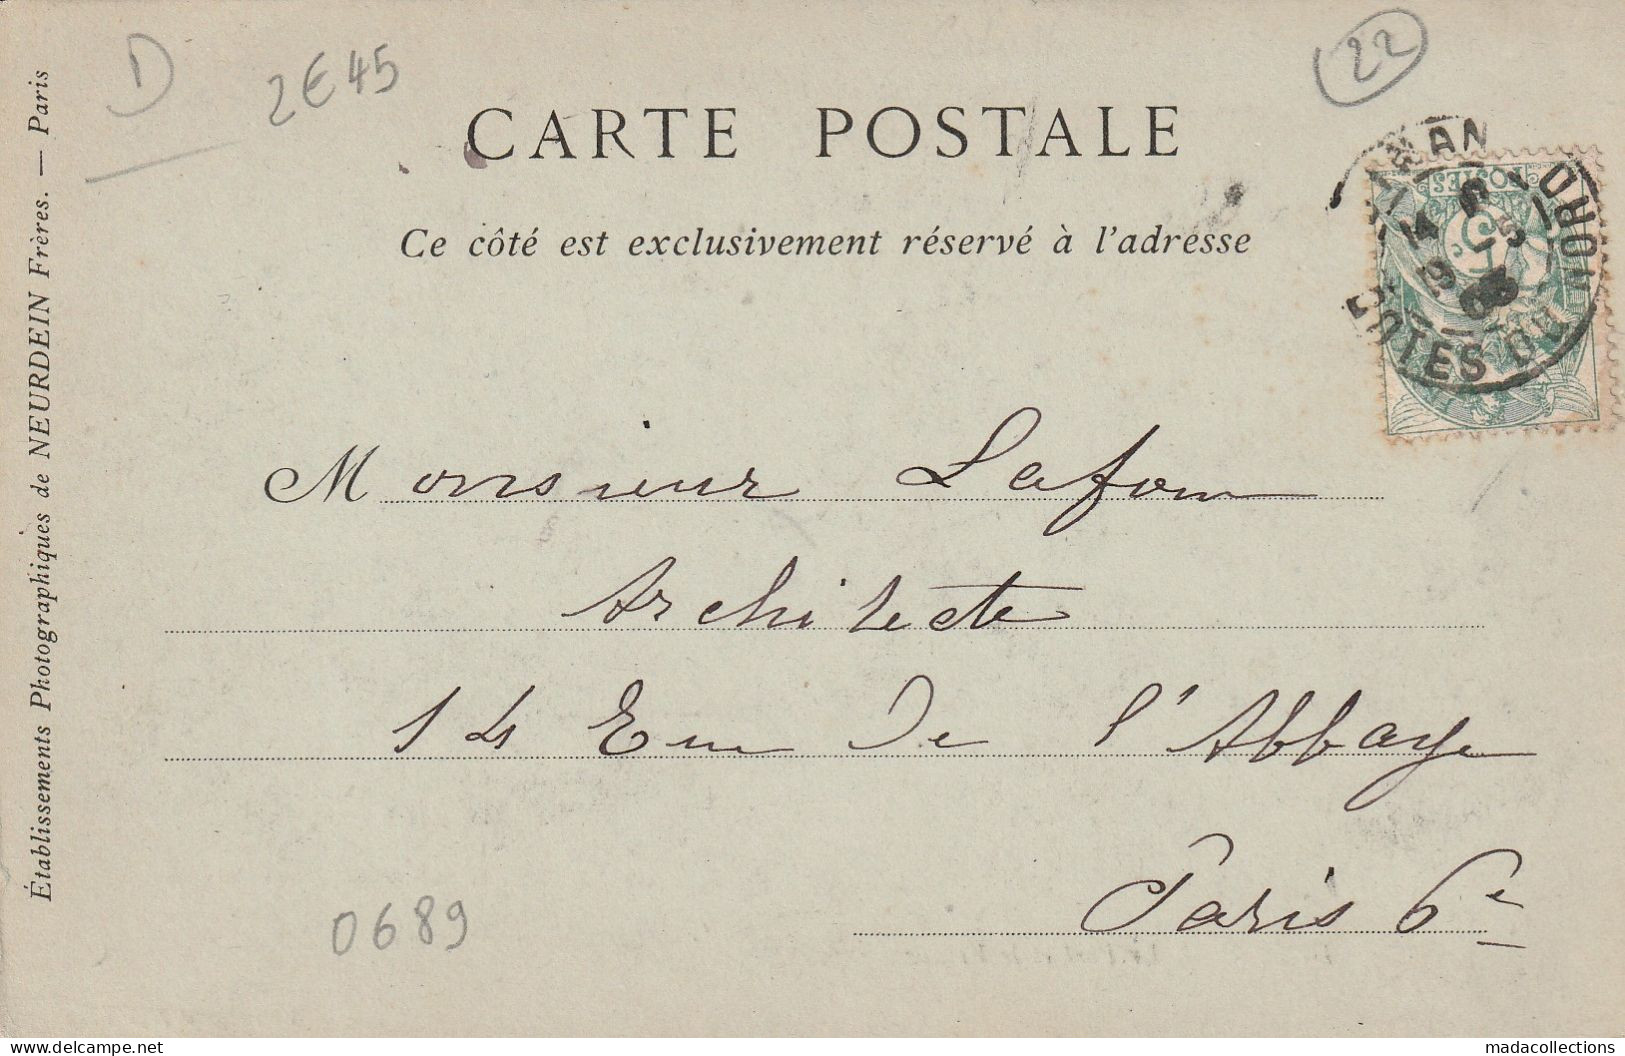 D
2€45
22
CARTE POSTALE
Ce côté est exclusivement réservé à l'adresse
Établissements Photographiques de NEURDEIN Frères. — Paris
POSTES
5
DU NORD
Monsieur Lafon
Architecte
14 Rue de l'Abbaye
Paris 6e
0689
www.delcampe.net
madacollections